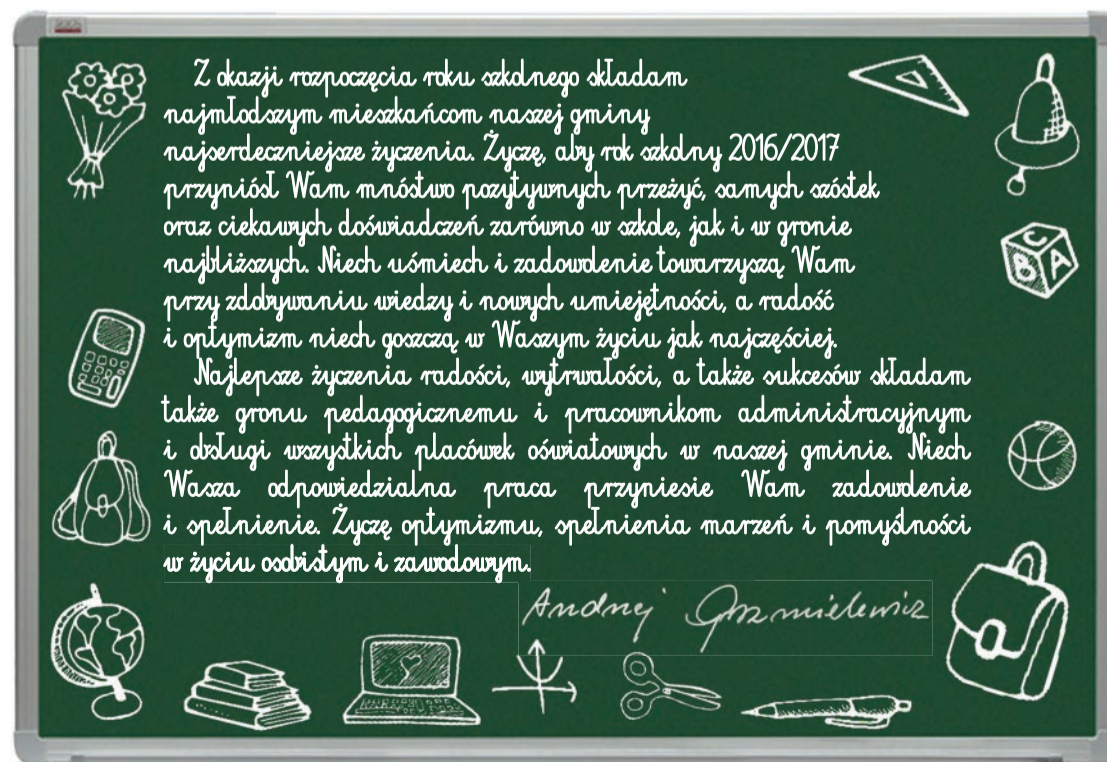 Z okazji rozpoczęcia roku szkolnego składam
najmłodszym mieszkańcom naszej gminy
najserdeczniejsze życzenia. Życzę, aby rok szkolny 2016/2017
przyniósł Wam mnóstwo pozytywnych przeżyć, samych szóstek
oraz ciekawych doświadczeń zarówno w szkole, jak i w gronie
najbliższych. Niech uśmiech i zadowolenie towarzyszą Wam
przy zdobywaniu wiedzy i nowych umiejętności, a radość
i optymizm niech goszczą w Waszym życiu jak najczęściej.
Najlepsze życzenia radości, wytrwałości, a także sukcesów składam
także gronu pedagogicznemu i pracownikom administracyjnym
i obsługi wszystkich placówek oświatowych w naszej gminie. Niech
Wasza odpowiedzialna praca przyniesie Wam zadowolenie
i spełnienie. Życzę optymizmu, spełnienia marzeń i pomyślności
w życiu osobistym i zawodowym.
Andrzej
C
B A